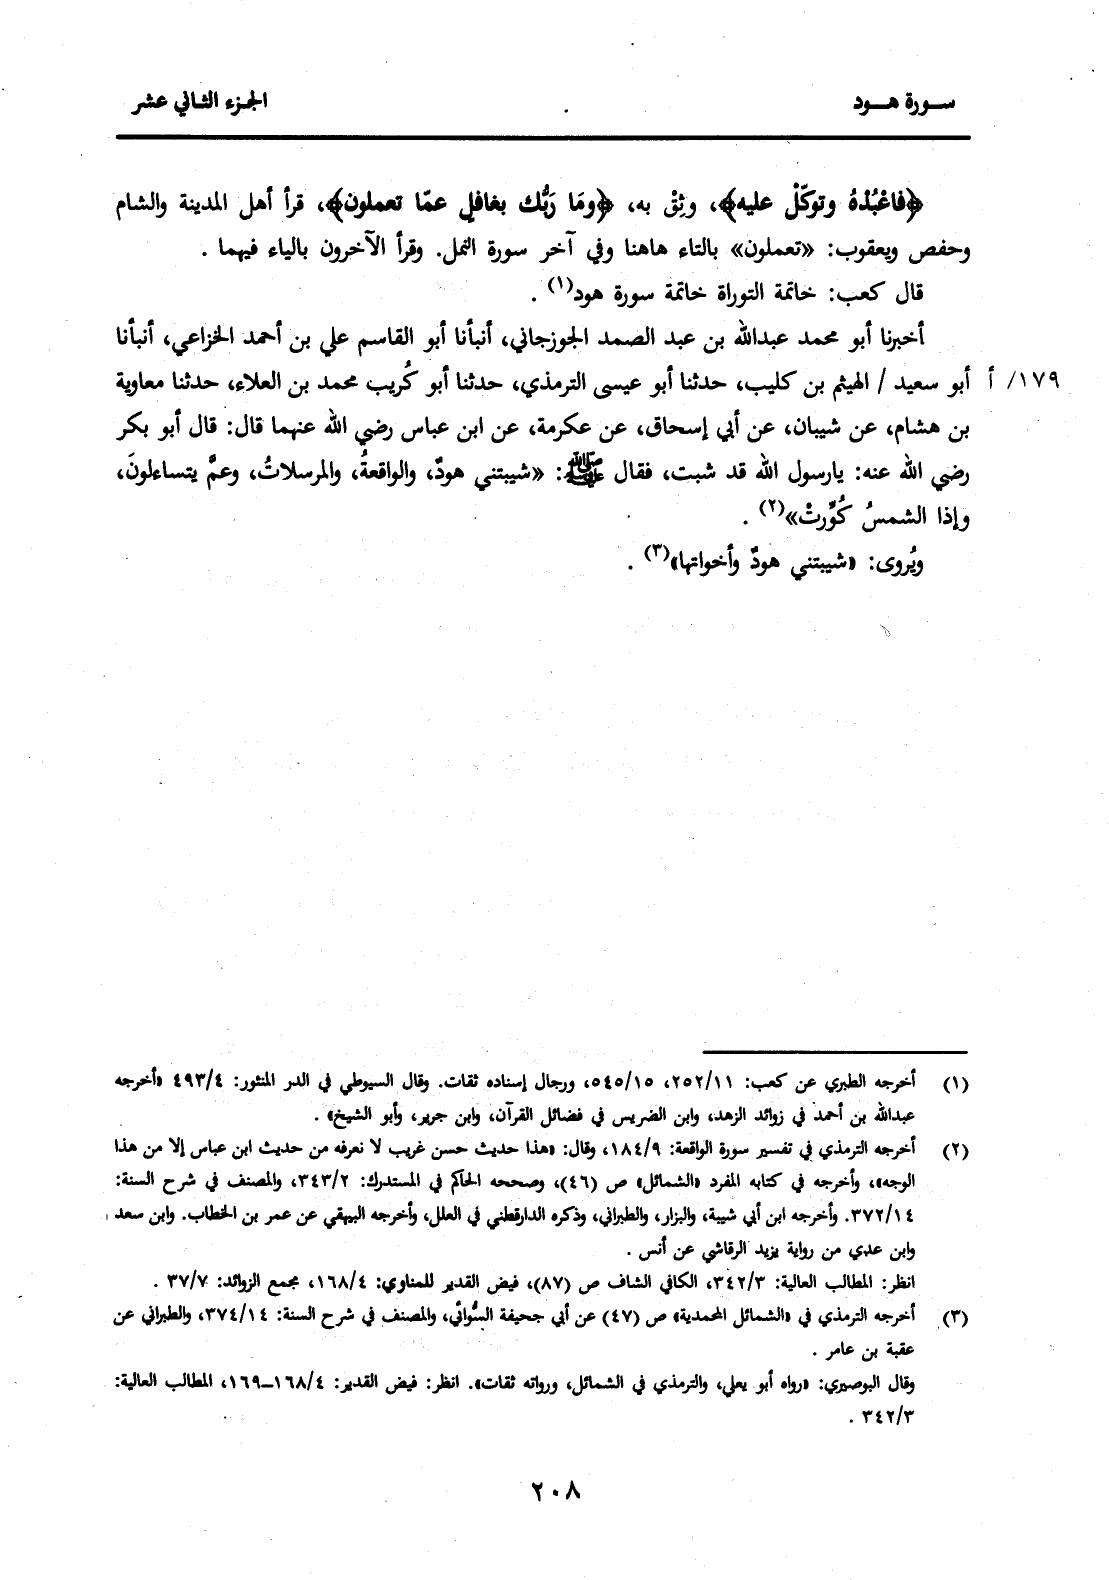 سورة هود
الجزء الثاني عشر
﴿فاعْبُدْهُ وتوكّلْ عليه﴾، وثِقْ به، ﴿ومَا رَبُّك بغافلٍ عمّا تعملون﴾، قرأ أهل المدينة والشام
وحفص ويعقوب: «تعملون» بالتاء هاهنا وفي آخر سورة النمل. وقرأ الآخرون بالياء فيهما .
قال كعب: خاتمة التوراة خاتمة سورة هود(١) .
أخبرنا أبو محمد عبدالله بن عبد الصمد الجوزجاني، أنبأنا أبو القاسم علي بن أحمد الخزاعي، أنبأنا
١٧٩/ أ أبو سعيد / الهيثم بن كليب، حدثنا أبو عيسى الترمذي، حدثنا أبو كُريب محمد بن العلاء، حدثنا معاوية
بن هشام، عن شيبان، عن أبي إسحاق، عن عكرمة، عن ابن عباس رضي الله عنهما قال: قال أبو بكر
رضي الله عنه: يارسول الله قد شبت، فقال ﷺ: «شيبتني هودٌ، والواقعةُ، والمرسلاتُ، وعمَّ يتساءلونَ،
وإذا الشمسُ كُوِّرتْ»(٢) .
ويُروى: «شيبتني هودٌ وأخواتها»(٣) .
(١) أخرجه الطبري عن كعب: ٢٥٢/١١، ٥٤٥/١٥، ورجال إسناده ثقات. وقال السيوطي في الدر المنثور: ٤٩٣/٤ «أخرجه
عبدالله بن أحمد في زوائد الزهد، وابن الضريس في فضائل القرآن، وابن جرير، وأبو الشيخ» .
(٢) أخرجه الترمذي في تفسير سورة الواقعة: ١٨٤/٩، وقال: «هذا حديث حسن غريب لا نعرفه من حديث ابن عباس إلا من هذا
الوجه»، وأخرجه في كتابه المفرد «الشمائل» ص (٤٦)، وصححه الحاكم في المستدرك: ٣٤٣/٢، والمصنف في شرح السنة:
٣٧٢/١٤. وأخرجه ابن أبي شيبة، والبزار، والطبراني، وذكره الدارقطني في العلل، وأخرجه البيهقي عن عمر بن الخطاب. وابن سعد
وابن عدي من رواية يزيد الرقاشي عن أنس .
انظر: المطالب العالية: ٣٤٢/٣، الكافي الشاف ص (٨٧)، فيض القدير للمناوي: ١٦٨/٤، مجمع الزوائد: ٣٧/٧ .
(٣) أخرجه الترمذي في «الشمائل المحمدية» ص (٤٧) عن أبي جحيفة السُّوائي، والمصنف في شرح السنة: ٣٧٤/١٤، والطبراني عن
عقبة بن عامر .
وقال البوصيري: «رواه أبو يعلي، والترمذي في الشمائل، ورواته ثقات». انظر: فيض القدير: ١٦٨/٤ــ١٦٩، المطالب العالية:
٣٤٢/٣ .
٢٠٨